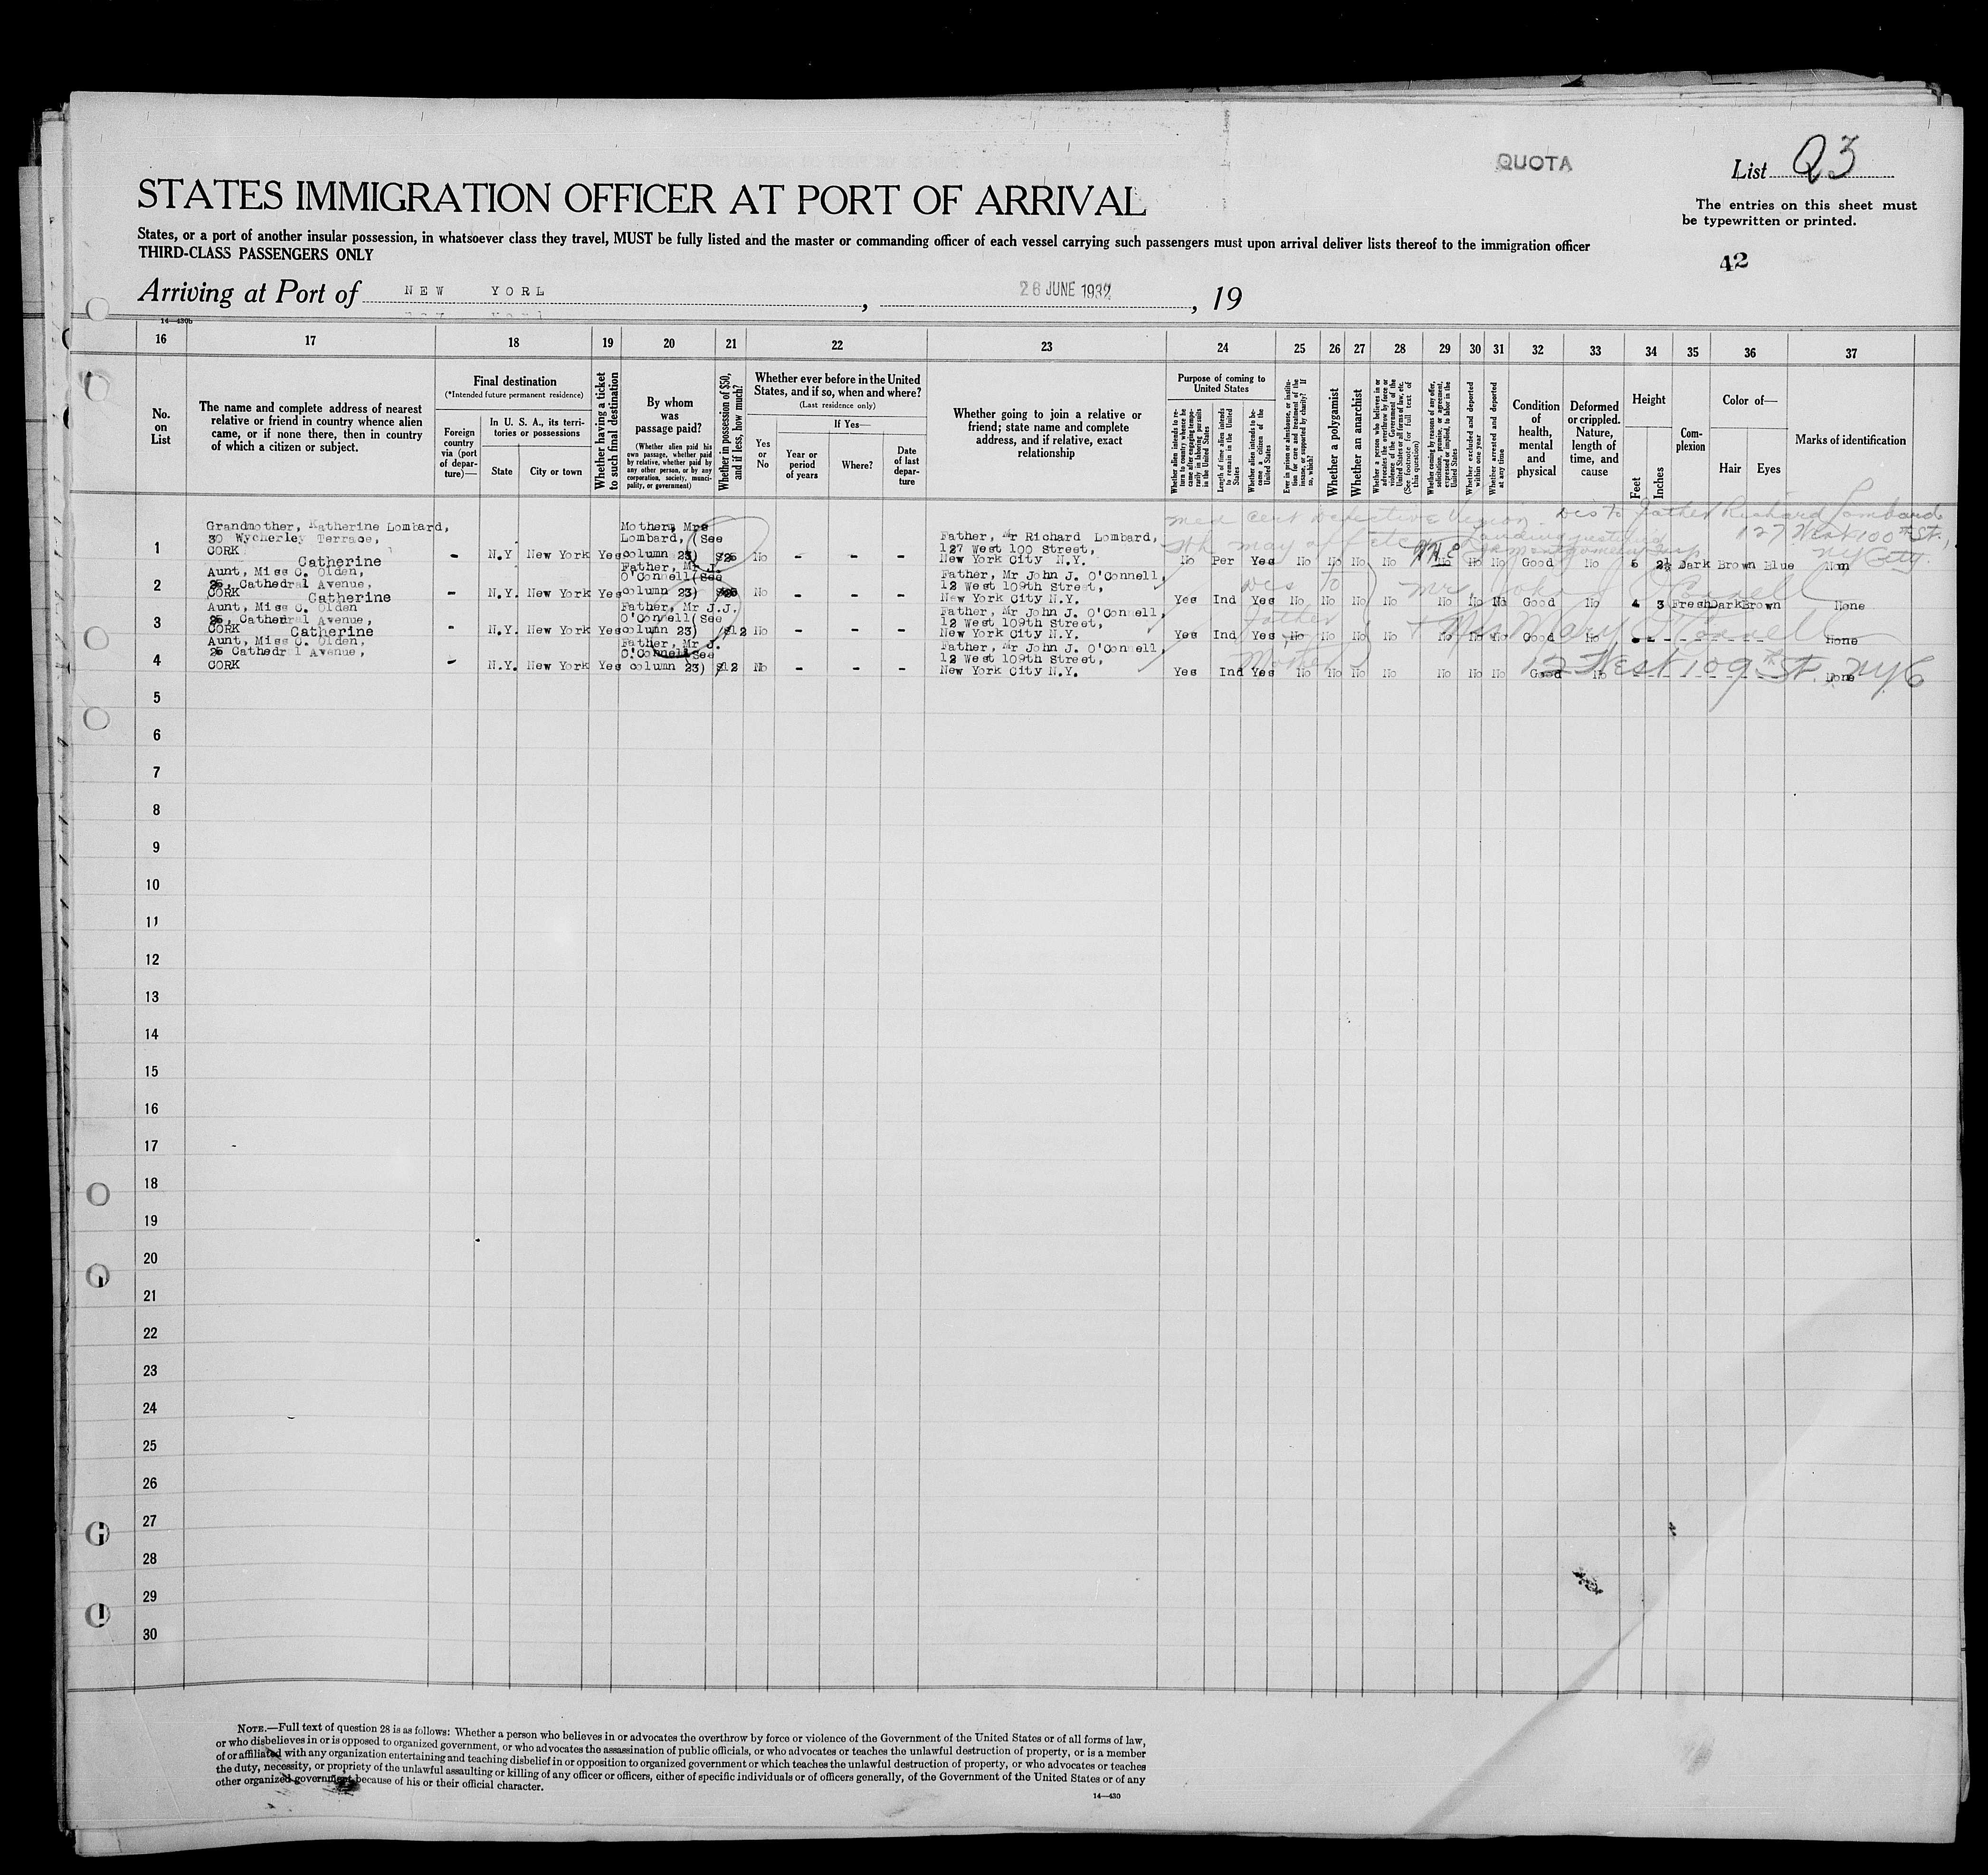 QUOTA
List Q3
STATES IMMIGRATION OFFICER AT PORT OF ARRIVAL
The entries on this sheet must
be typewritten or printed.
States, or a port of another insular possession, in whatsoever class they travel, MUST be fully listed and the master or commanding officer of each vessel carrying such passengers must upon arrival deliver lists thereof to the immigration officer
THIRD-CLASS PASSENGERS ONLY
42
Arriving at Port of NEW YORL, 26 JUNE 1932, 19
14—430b
16 17 18 19 20 21 22 23 24 25 26 27 28 29 30 31 32 33 34 35 36 37
No. on List
The name and complete address of nearest
relative or friend in country whence alien
came, or if none there, then in country
of which a citizen or subject.
Final destination
(*Intended future permanent residence)
Foreign country via (port of departure)—
In U. S. A., its territories or possessions
State
City or town
Whether having a ticket to such final destination
By whom was passage paid?
(Whether alien paid his own passage, whether paid by relative, whether paid by any other person, or by any corporation, society, municipality, or government)
Whether in possession of $50, and if less, how much?
Whether ever before in the United
States, and if so, when and where?
(Last residence only)
Yes or No
If Yes—
Year or period of years
Where?
Date of last departure
Whether going to join a relative or
friend; state name and complete
address, and if relative, exact
relationship
Purpose of coming to
United States
Whether alien intends to return to country whence he came after engaging temporarily in laboring pursuits in the United States
Length of time alien intends to remain in the United States
Whether alien intends to become a citizen of the United States
Ever in prison or almshouse, or institution for care and treatment of the insane, or supported by charity? If so, which?
Whether a polygamist
Whether an anarchist
Whether a person who believes in or advocates the overthrow by force or violence of the Government of the United States or all forms of law, etc. (See footnote for full text of this question)
Whether coming by reason of any offer, solicitation, promise, or agreement, expressed or implied, to labor in the United States
Whether excluded and deported within one year
Whether arrested and deported at any time
Condition of health, mental and physical
Deformed or crippled. Nature, length of time, and cause
Height
Feet
Inches
Complexion
Color of—
Hair
Eyes
Marks of identification
med cert Defective Vision Dis to father Richard Lombard
127 West 100th St.,
NY City.
Grandmother, Katherine Lombard,
30 Wycherley Terrace,
CORK
1 - N.Y New York Yes Mother, Mrs Lombard, (See column 23) $25 No - - - Father, Mr Richard Lombard, 127 West 100 Street, New York City N.Y. No Per Yes No No No No No No No Good No 5 2½ Dark Brown Blue Non
Catherine
Aunt, Miss C. Olden,
25, Cathedral Avenue,
CORK
2 - N.Y. New York Yes Father, Mr J. O'Connell (See column 23) No - - - Father, Mr John J. O'Connell, 12 West 109th Street, New York City N.Y. Yes Ind Yes No No No No No No No Good No 4 3 Fresh Dark Brown None
Dis to Father Mr John J O'Connell
Catherine
Aunt, Miss C. Olden
25, Cathedral Avenue,
CORK
3 - N.Y. New York Yes Father, Mr J.J. O'Connell (See column 23) $12 No - - - Father, Mr John J. O'Connell, 12 West 109th Street, New York City N.Y. Yes Ind Yes No No No No No No No Good No - - - - - None
+ Mother Mrs Mary O'Connell
Catherine
Aunt, Miss C. Olden,
25 Cathedral Avenue,
CORK
4 - N.Y. New York Yes Father, Mr J. O'Connell See column 23) $12 No - - - Father, Mr John J. O'Connell, 12 West 109th Street, New York City N.Y. Yes Ind Yes No No No No No No No Good No - - - - - None
12 West 109th St. NYC
5
6
7
8
9
10
11
12
13
14
15
16
17
18
19
20
21
22
23
24
25
26
27
28
29
30
NOTE.—Full text of question 28 is as follows: Whether a person who believes in or advocates the overthrow by force or violence of the Government of the United States or of all forms of law,
or who disbelieves in or is opposed to organized government, or who advocates the assassination of public officials, or who advocates or teaches the unlawful destruction of property, or is a member
of or affiliated with any organization entertaining and teaching disbelief in or opposition to organized government or which teaches the unlawful destruction of property, or who advocates or teaches
the duty, necessity, or propriety of the unlawful assaulting or killing of any officer or officers, either of specific individuals or of officers generally, of the Government of the United States or of any
other organized government because of his or their official character.
14—430